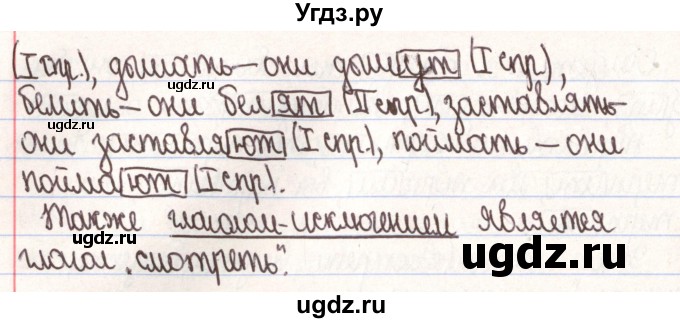 Угдз.ру
(I спр.), дышать – они дышут (I спр.),
белить – они белят (II спр.), заставлять –
они заставляют (I спр.), поймать – они
поймают (I спр.).
Также глаголом-исключением является
глагол „смотреть".
ugdz.ru
ugdz.ru
ugdz.ru
ugdz.ru
ugdz.ru
ugdz.ru
ugdz.ru
ugdz.ru